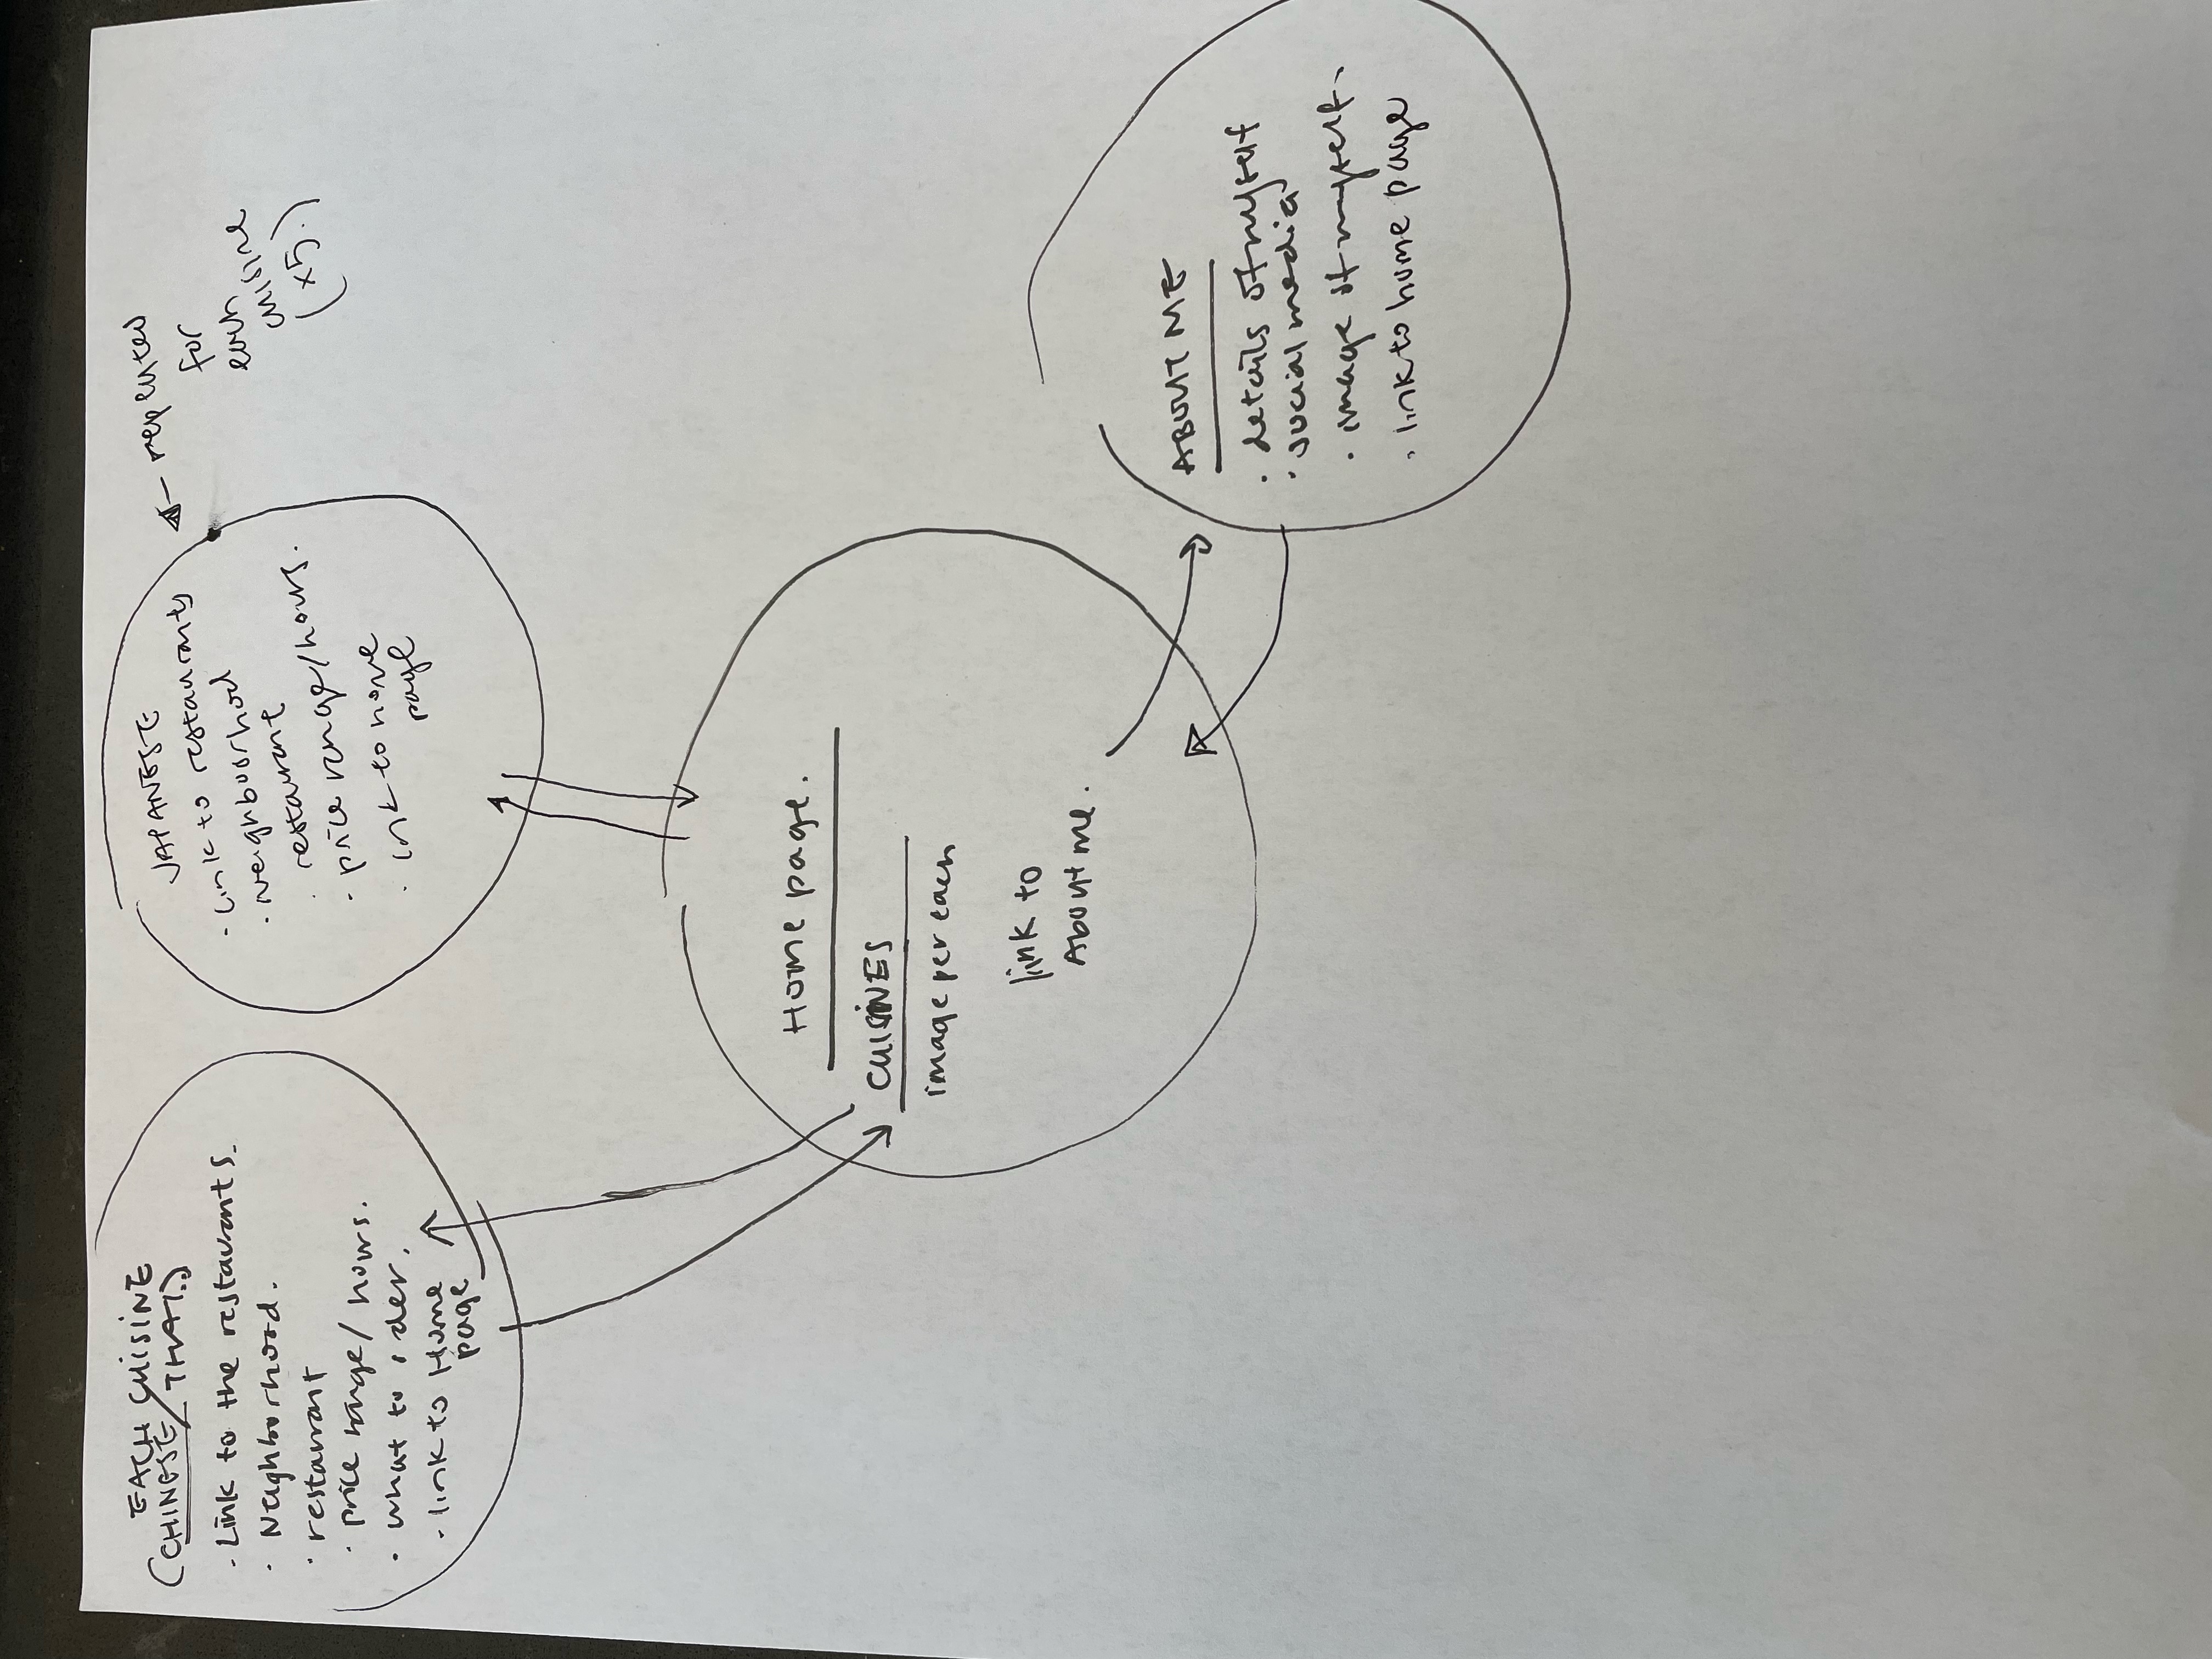 EACH CUISINE
(CHINESE/THAI..)
· Link to the restaurants.
· Neighborhood.
· restaurant
· price range/hours.
· what to order.
· link to Home
page
JAPANESE
· Link to restaurants
· neighbourhod
· restaurant
· price range/hours.
· link to home
page
repeated
for
each
cuisine
(x5.)
Home page.
CUISINES
image per each
link to
About me.
ABOUT ME
· details of myself
· social media
· image of myself.
· link to home page